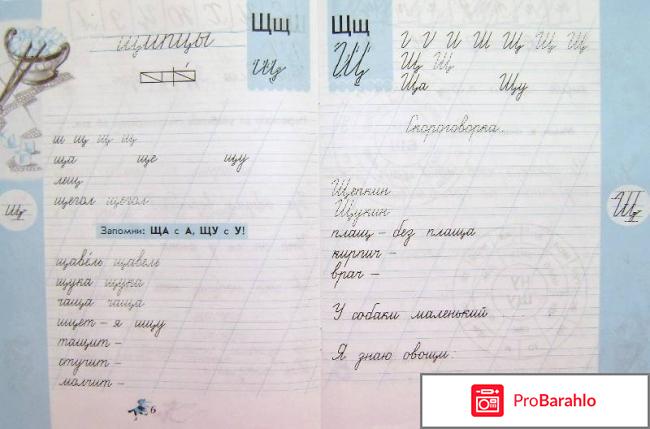 щипцы
Щщ
Щщ
ш щ щ щ
ща ще щу
лещ
щегол щегол
Запомни: ЩА с А, ЩУ с У!
щавель щавель
щука щука
чаща чаща
ищет – я ищу
тащит –
стучит –
молчит –
6
Щщ
Щщ
Щ Щ
Ща Щу
Скороговорка.
Щепкин
Щукин
плащ – без плаща
кирпич –
врач –
У собаки маленький
Я знаю овощи:
Щ
ProBarahlo